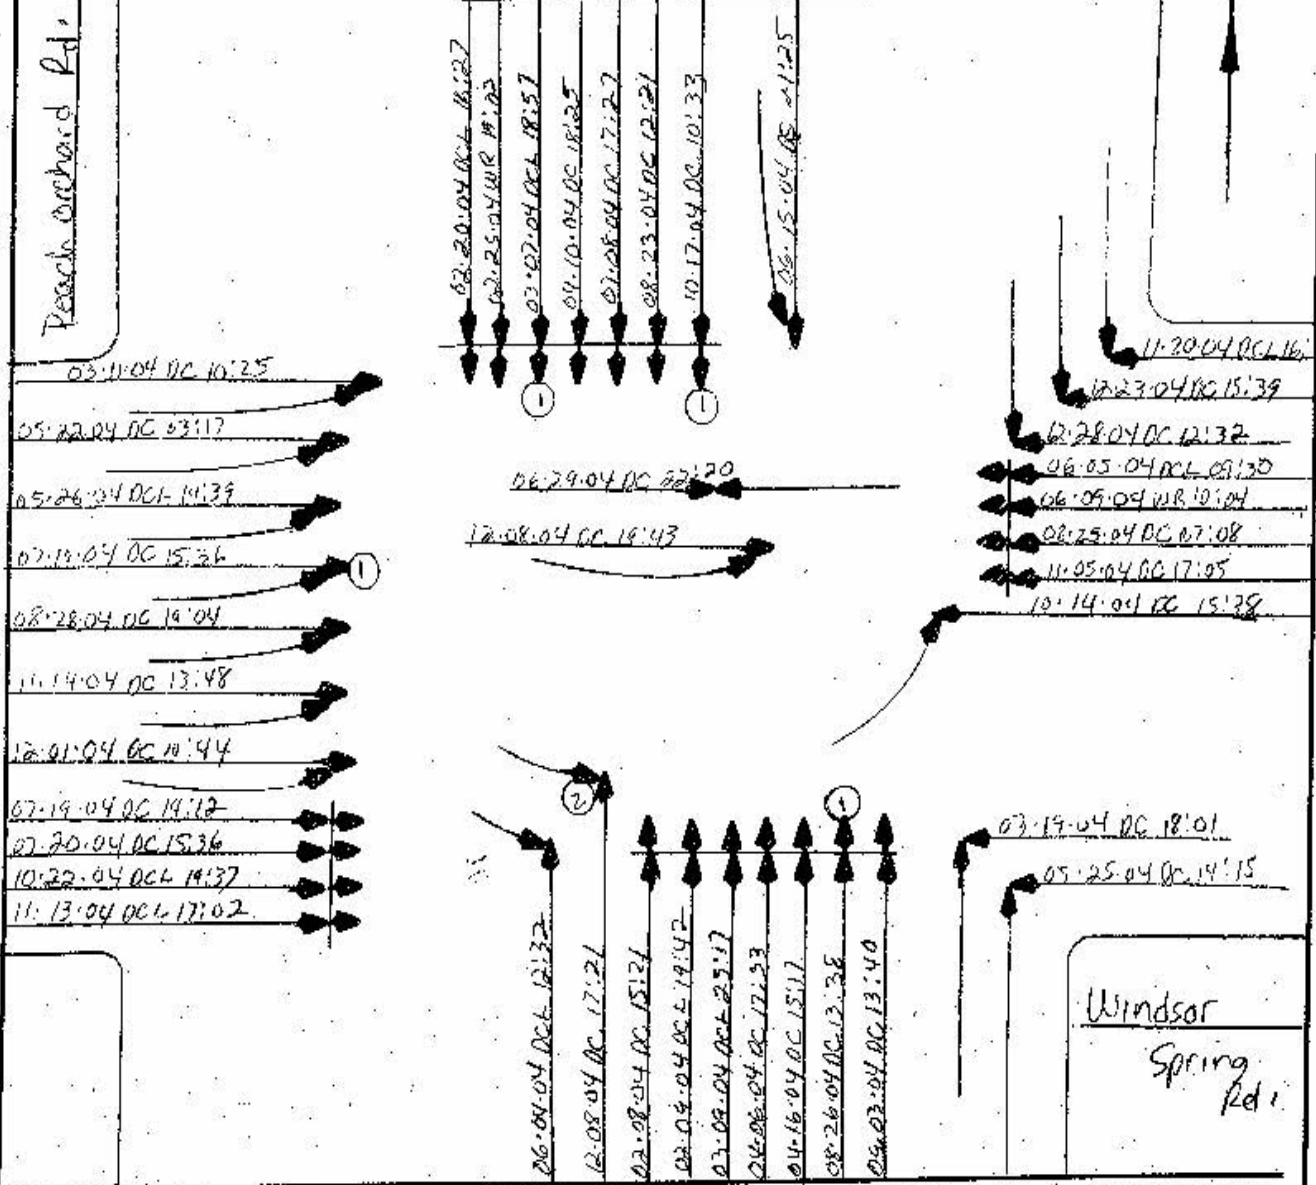 Peach orchard Rd.
02·20·04 DCL 18:27
02·25·04 WR
03·07·04 DCL 18:57
DC 18:25
DC 17:27
08·23·04 DC 12:21
10·17·04 DC 10:33
06·15·04 21:25
03·11·04 DC 10:25
05·22·04 DC 03:17
05·26·04 DCL 19:39
07·19·04 DC 15:36
08·28·04 DC 19:04
11·14·04 DC 13:48
12·01·04 DC :44
07·19·04 DC 19:12
07·20·04 DC 15:36
10·22·04 DCL 19:37
11·13·04 DCL 17:02
06·29·04 DC 22:20
12·08·04 DC 19:43
11·20·04 DCL 16:
12·23·04 DC 15:39
12·28·04 DC 12:32
06·05·04 DCL 09:30
06·09·04 WR
08·25·04 DC 07:08
11·05·04 DC 17:05
10·14·04 DC 15:38
1
1
1
2
1
03·19·04 DC 18:01
05·25·04 DC 14:15
06·04·04 DCL 12:32
12·08·04 DC 17:21
02·08·04 DC 15:21
DCL 19:42
03·09·04 DCL 23:17
04·06·04 DC 17:33
04·16·04 DC 15:17
08·26·04 DC 13:38
09·03·04 DC 13:40
Windsor
Spring
Rd.